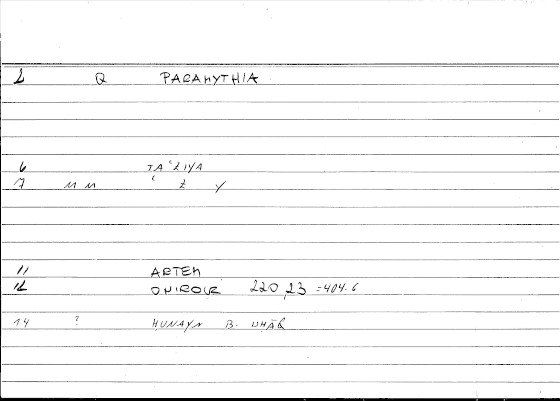 1 Q PARAMYTHIA
6 TAʿZIYA
7 MM ʿ Z Y
11 ARTEM
12 ONIROCR 220,23 =404.6
14 ? HUNAYN B. ISHĀQ